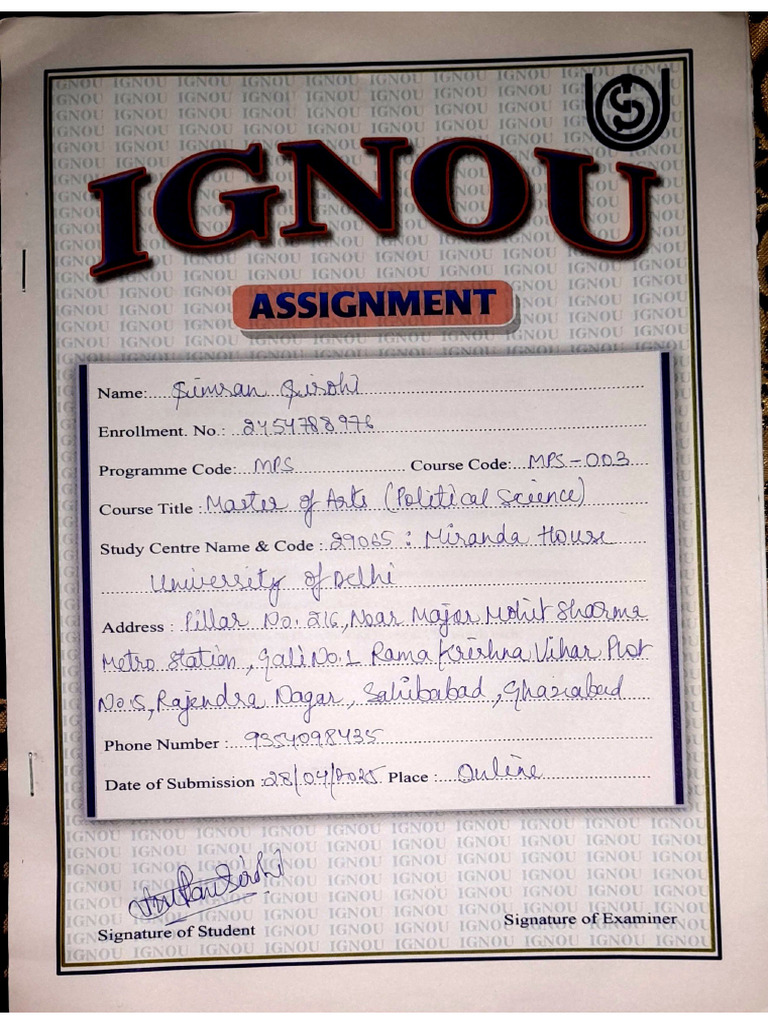 IGNOU
ASSIGNMENT
Name: Simran Sirohi
Enrollment. No.: 2454788976
Programme Code: MPS Course Code: MPS-003
Course Title : Master of Arts (Political Science)
Study Centre Name & Code : 29065 : Miranda House
University of Delhi
Address : Pillar No. 216, Near Major Mohit Sharma
Metro Station, Gali No.1 Rama Krishna Vihar Plot
No.5, Rajendra Nagar, Sahibabad, Ghaziabad
Phone Number : 9354098435
Date of Submission : 28/04/2025 Place : Online
Signature of Student
Signature of Examiner